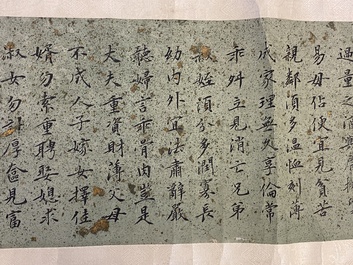 過量之酒與肩挑
易毋佔便宜見貧苦
親鄰須多溫恤刻薄
成家理無久享倫常
乖舛立見消亡兄弟
叔姪須分多潤寡長
幼內外宜法肅辭嚴
聽婦言乖骨肉豈是
丈夫重資財薄父母
不成人子嫁女擇佳
婿勿索重聘娶媳求
淑女勿計厚奩見富